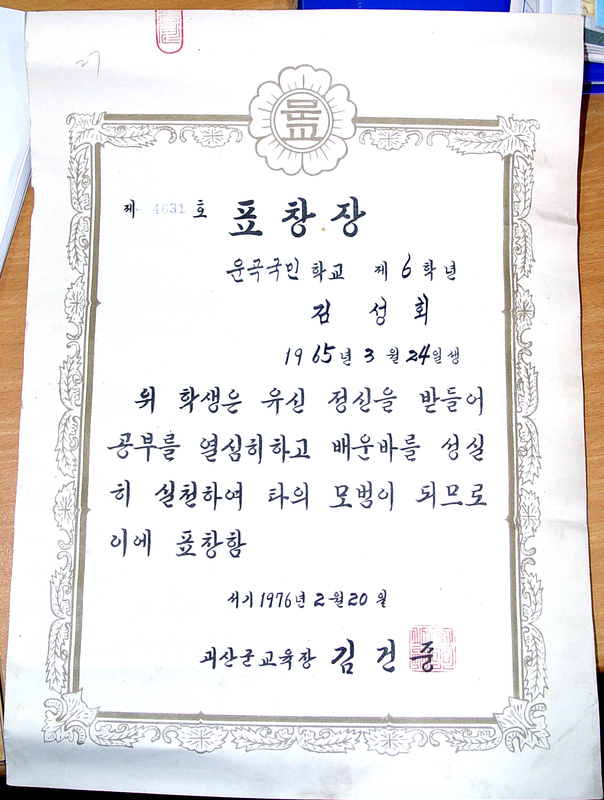 문교
제 4631 호 표창장
운곡국민 학교 제 6 학년
김 성 회
1965년 3월 24일생
위 학생은 유신 정신을 받들어
공부를 열심히하고 배운바를 성실
히 실천하여 타의 모범이 되므로
이에 표창함
서기 1976년 2월 20일
괴산군교육장 김 건 중